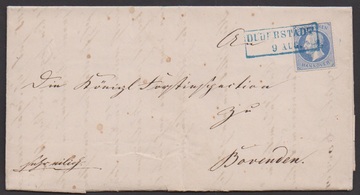 An
DUDERSTADT
9 AUG
Die Königl Forstinspection
Zu
Bovenden.